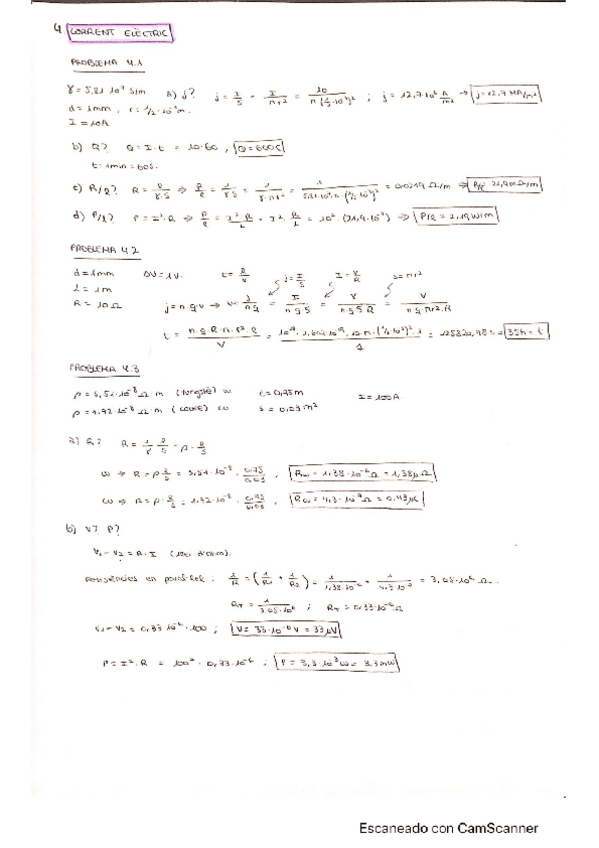 4. CORRENT ELÈCTRIC
PROBLEMA 4.1
γ = 5,81·10⁷ S/m a) j? j = I/S = I/πr² = 10/π(½·10⁻³)² ; j = 12,7·10⁶ A/m² → j = 12,7 MA/m²
d = 1mm, r = ½·10⁻³m.
I = 10A
b) Q? Q = I·t = 10·60, Q = 600C
t = 1min = 60s.
c) R/l? R = l/γ·S ⇒ R/l = 1/γ·S = 1/γ·πr² = = 0,0219 Ω/m → R/l = 21,9mΩ/m
d) P/l? P = I²·R ⇒ P/l = I²·R/L = I²·R/L = 10²·(21,9·10⁻³) ⇒ P/l = 2,19W/m
PROBLEMA 4.2
d = 1mm ΔV = 1V. j = I/S I = V/R S = πr²
l = 1m
R = 10Ω j = n·q·v → v = j/n·q = I/n·q·S = V/n·q·S·R = V/n·q·πr²·R
t = n·q·R·π·r²·l/V = = 35h = t
PROBLEMA 4.3
ρ = 5,51·10⁻⁸ Ω·m (tungstè) W l = 0,75m I = 100A.
ρ = 1,72·10⁻⁸ Ω·m (coure) Cu S = 0,03m²
a) R? R = 1/γ · l/S = ρ·l/S
W → R = ρ l/S = 5,51·10⁻⁸ · 0,75/0,03, = 1,38·10⁻⁶Ω = 1,38μΩ
Cu → R = ρ·l/S = 1,72·10⁻⁸ · 0,75/0,03,
b) V? P?
V₁-V₂ = R·I (llei d'Ohm).
Resistències en paral·lel: 1/R = (1/R₁ + 1/R₂) = = 3,05·10⁶ Ω.
R_T = 1/3,05·10⁶ ; R_T = 0,33·10⁻⁶Ω
V₁-V₂ = 0,33·10⁻⁶·100 ; V = 33·10⁻⁶V = 33μV
P = I²·R = 100² · 0,33·10⁻⁶ ; P = 3,3·10⁻³W = 3,3mW
Escaneado con CamScanner